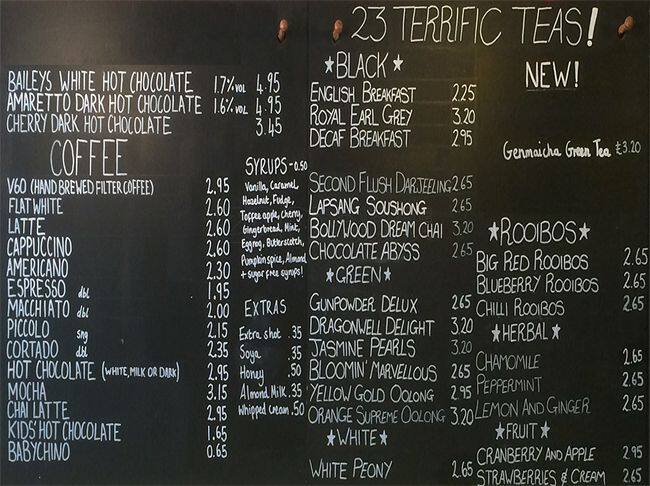 BAILEYS WHITE HOT CHOCOLATE 1.7% VOL 4.95
AMARETTO DARK HOT CHOCOLATE 1.6% VOL 4.95
CHERRY DARK HOT CHOCOLATE 3.45
COFFEE
V60 (HAND BREWED FILTER COFFEE) 2.95
FLAT WHITE 2.60
LATTE 2.60
CAPPUCCINO 2.60
AMERICANO 2.30
ESPRESSO dbl 1.95
MACCHIATO dbl 2.00
PICCOLO sng 2.15
CORTADO dbl 2.35
HOT CHOCOLATE (WHITE, MILK OR DARK) 2.95
MOCHA 3.15
CHAI LATTE 2.95
KIDS' HOT CHOCOLATE 1.65
BABYCHINO 0.65
SYRUPS - 0.50
Vanilla, Caramel
Hazelnut, Fudge,
Toffee apple, Cherry,
Gingerbread, Mint,
Eggnog, Butterscotch,
Pumpkin spice, Almond
+ sugar free syrups!
EXTRAS
Extra shot .35
Soya .35
Honey .50
Almond Milk .35
Whipped cream .50
23 TERRIFIC TEAS!
★BLACK★
ENGLISH BREAKFAST 2.25
ROYAL EARL GREY 3.20
DECAF BREAKFAST 2.95
SECOND FLUSH DARJEELING 2.65
LAPSANG SOUSHONG 2.65
BOLLYWOOD DREAM CHAI 3.20
CHOCOLATE ABYSS 2.65
★GREEN★
GUNPOWDER DELUX 2.65
DRAGONWELL DELIGHT 3.20
JASMINE PEARLS 3.20
BLOOMIN' MARVELLOUS 2.65
YELLOW GOLD OOLONG 2.95
ORANGE SUPREME OOLONG 3.20
★WHITE★
WHITE PEONY 2.65
NEW!
Genmaicha Green Tea £3.20
★ROOIBOS★
BIG RED ROOIBOS 2.65
BLUEBERRY ROOIBOS 2.65
CHILLI ROOIBOS 2.65
★HERBAL★
CHAMOMILE 2.65
PEPPERMINT 2.65
LEMON AND GINGER 2.65
★FRUIT★
CRANBERRY AND APPLE 2.95
STRAWBERRIES & CREAM 2.65